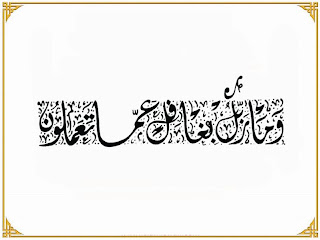 وَمَا رَبُّكَ بِغَافِلٍ عَمَّا تَعْمَلُونَ